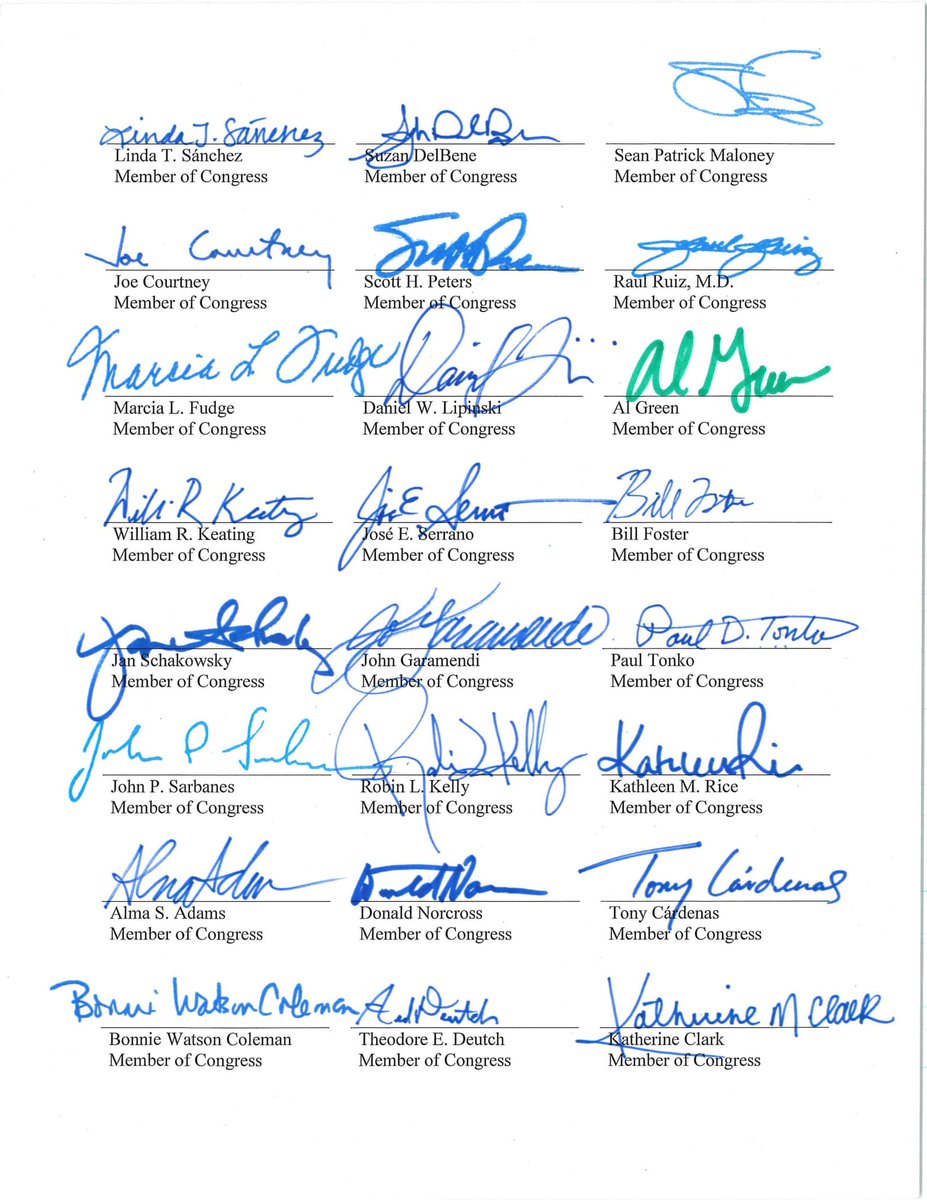 Linda T. Sánchez Suzan DelBene
Linda T. Sánchez Suzan DelBene Sean Patrick Maloney
Member of Congress Member of Congress Member of Congress
Joe Courtney
Joe Courtney Scott H. Peters Raul Ruiz, M.D.
Member of Congress Member of Congress Member of Congress
Marcia L. Fudge Al Green
Marcia L. Fudge Daniel W. Lipinski Al Green
Member of Congress Member of Congress Member of Congress
José E. Serrano Bill Foster
William R. Keating José E. Serrano Bill Foster
Member of Congress Member of Congress Member of Congress
John Garamendi Paul D. Tonko
Jan Schakowsky John Garamendi Paul Tonko
Member of Congress Member of Congress Member of Congress
John P Robin L Kelly
John P. Sarbanes Robin L. Kelly Kathleen M. Rice
Member of Congress Member of Congress Member of Congress
Alma Adams Tony Cárdenas
Alma S. Adams Donald Norcross Tony Cárdenas
Member of Congress Member of Congress Member of Congress
Bonnie Watson Coleman Ted Deutch Katherine M Clark
Bonnie Watson Coleman Theodore E. Deutch Katherine Clark
Member of Congress Member of Congress Member of Congress